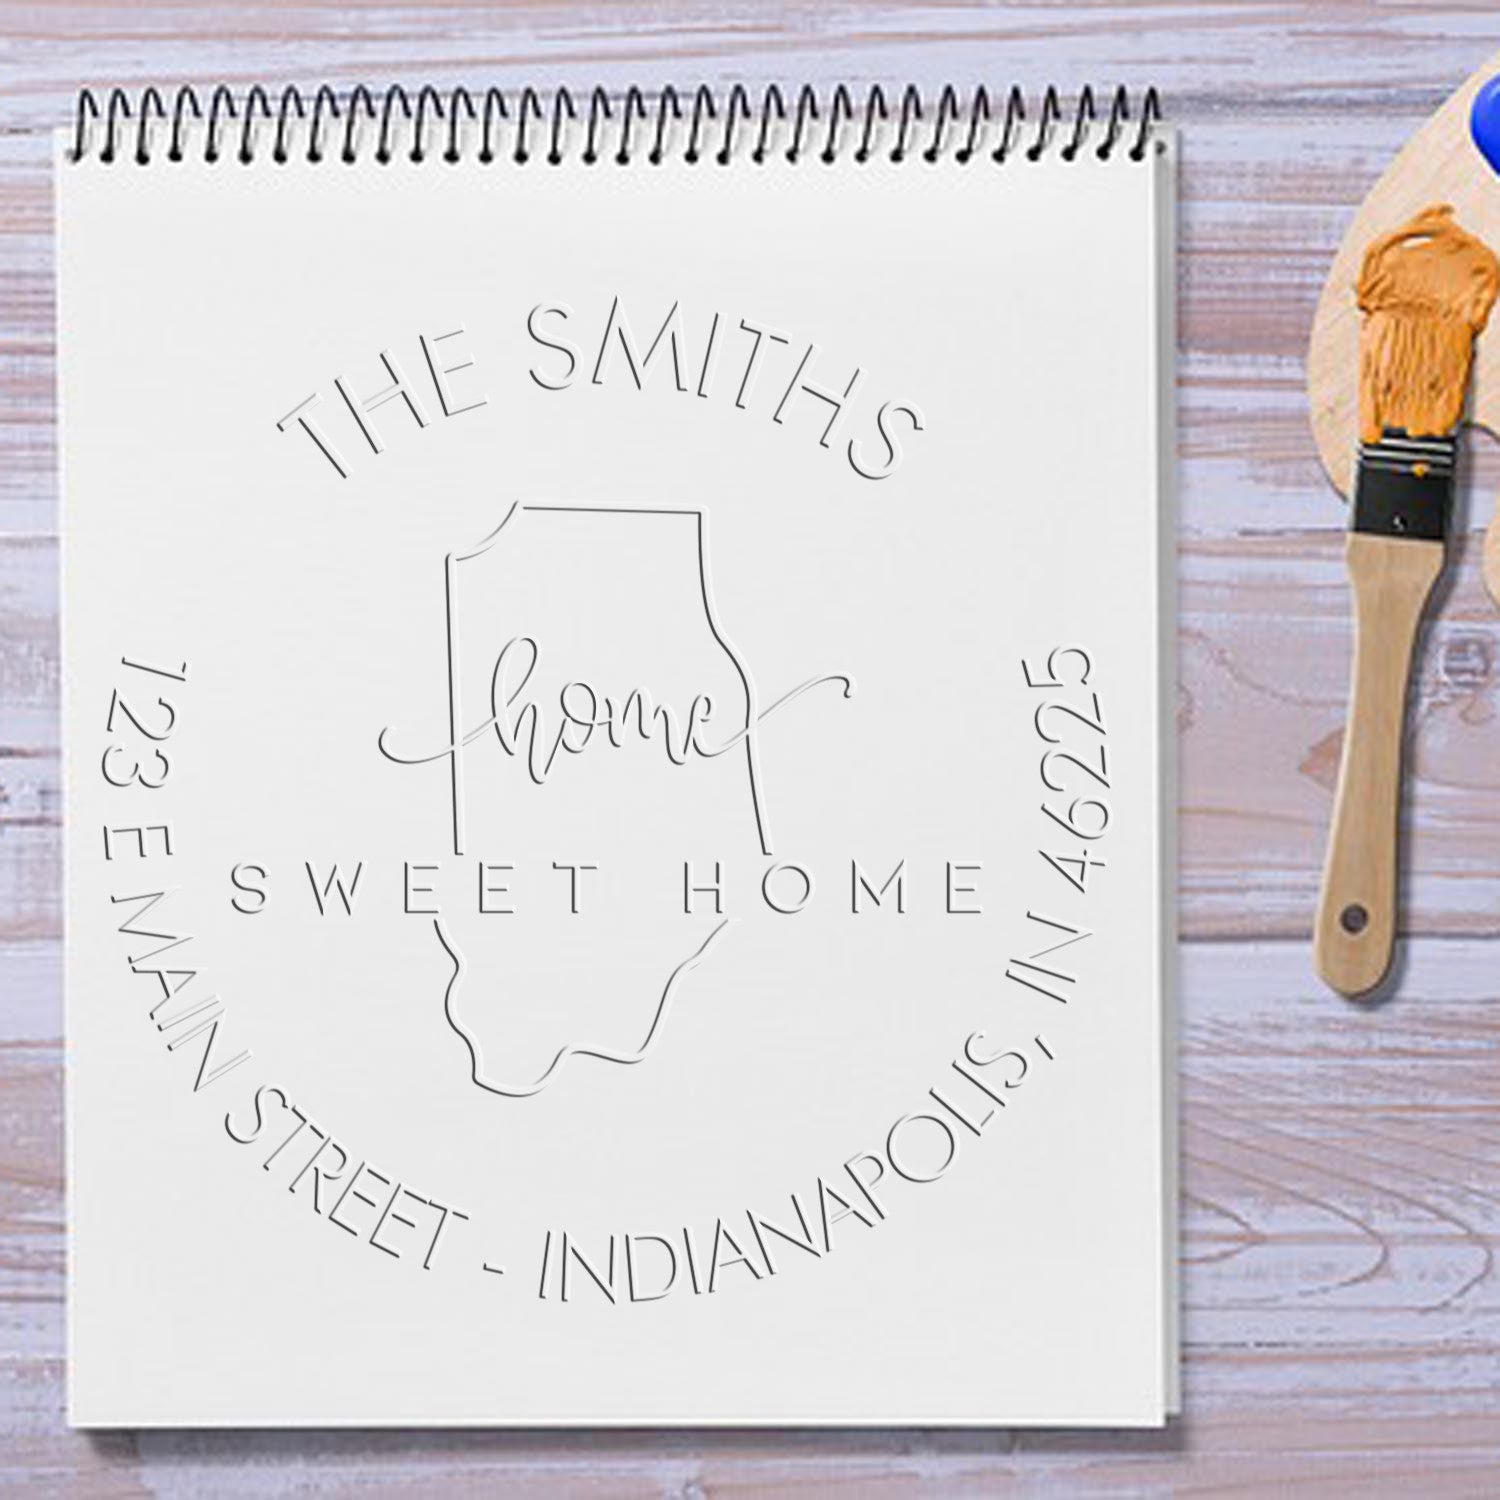 THE SMITHS
home
SWEET HOME
123 E MAIN STREET - INDIANAPOLIS, IN 46225